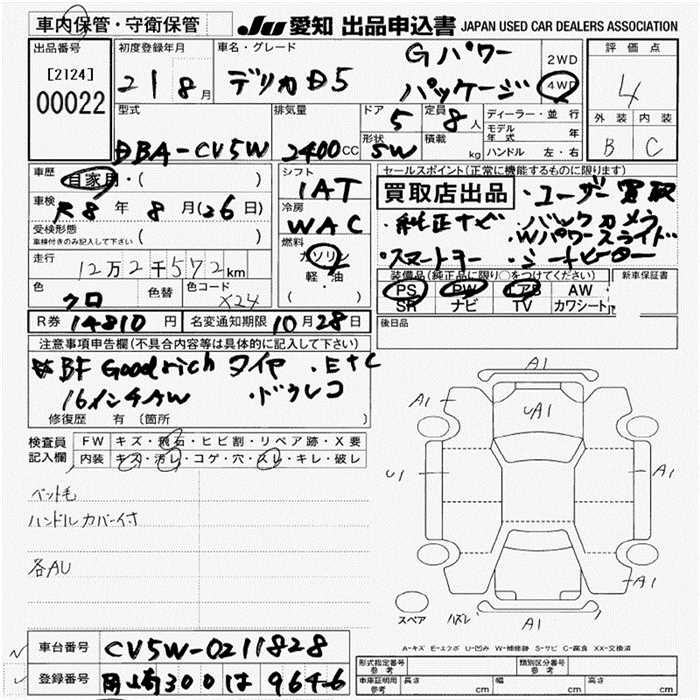 車内保管・守衛保管 JU 愛知 出品申込書 JAPAN USED CAR DEALERS ASSOCIATION
出品番号
[2124]
00022
初度登録年月
21 8月
車名・グレード
デリカD5
Gパワー
パッケージ
2WD
4WD
評価点
4
外装 内装
B C
型式
DBA-CV5W
排気量
2400cc
ドア
5
形状
5W
定員
8人
積載
kg
ディーラー・並行
モデル年式 年
ハンドル 左・右
車歴 自家用・( )
車検 R8年 8月(26日)
受検形態
車検付きのみ記入して下さい ( )
走行
12万2千572km
色 クロ 色替 色コード X24
シフト
IAT
冷房
WAC
燃料
ガソリン
軽・油
( )
セールスポイント(正常に機能するものに限ります)
買取店出品 ・ユーザー買取
・純正ナビ ・バックカメラ
・Wパワースライド
・スマートキー ・シートヒーター
装備品(純正品に限り○をつけてください)
PS PW エアB AW
SR ナビ TV カワシート
新車保証書
後日品
R券 14810円 名変通知期限 10月28日
注意事項申告欄(不具合内容等は具体的に記入して下さい)
BF Goodrichタイヤ ・ETC
16インチAW ・ドラレコ
修復歴 有 〔箇所 〕
検査員記入欄
FW キズ・飛石・ヒビ割・リペア跡・X要
内装 キズ・汚レ・コゲ・穴・スレ・キレ・破レ
ペット毛
ハンドルカバー付
各AU
A1
A1
UA1
A1
U1
A1
A1
スペア
ハズレ
A1
A-キズ E-エクボ U-凹み W-補修跡 S-サビ C-腐食 XX-交換済
車台番号 CV5W-0211828
登録番号 岡崎300は9646
形式指定番号
参考
類別区分番号
参考
車庫証明用
参考
長さ cm 幅 cm 高さ cm